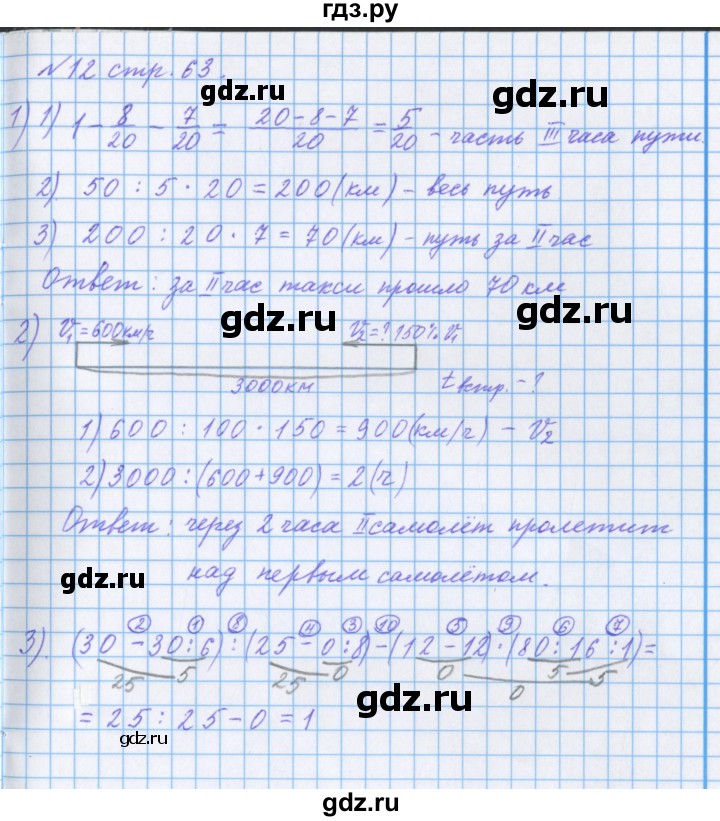 гдз.ру
№12 стр. 63.
gdz.ru
gdz.ru
1) 1) 1 - 8/20 - 7/20 = (20-8-7)/20 = 5/20 - часть III часа пути.
2) 50 : 5 · 20 = 200 (км) - весь путь
3) 200 : 20 · 7 = 70 (км) - путь за II час
Ответ: за II час такси прошло 70 км
gdz.ru
gdz.ru
2) V₁=600км/ч V₂=? 150% V₁
3000км t встр. - ?
1) 600 : 100 · 150 = 900 (км/ч) - V₂
2) 3000 : (600+900) = 2 (ч)
gdz.ru
Ответ: через 2 часа II самолёт пролетит
gdz.ru
над первым самолётом.
2 1 8 4 3 10 5 9 6 7
3). (30 - 30 : 6) : (25 - 0 : 8) - (12 - 12) · (80 : 16 : 1) =
25 5 25 0 0 0 5 5
gdz.ru
= 25 : 25 - 0 = 1
gdz.ru
gdz.ru